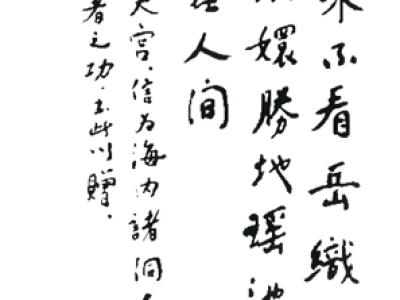 来不看岳織
嬛勝地瑶池
在人间
天宫,信为海内諸洞
者之功,书此以贈.